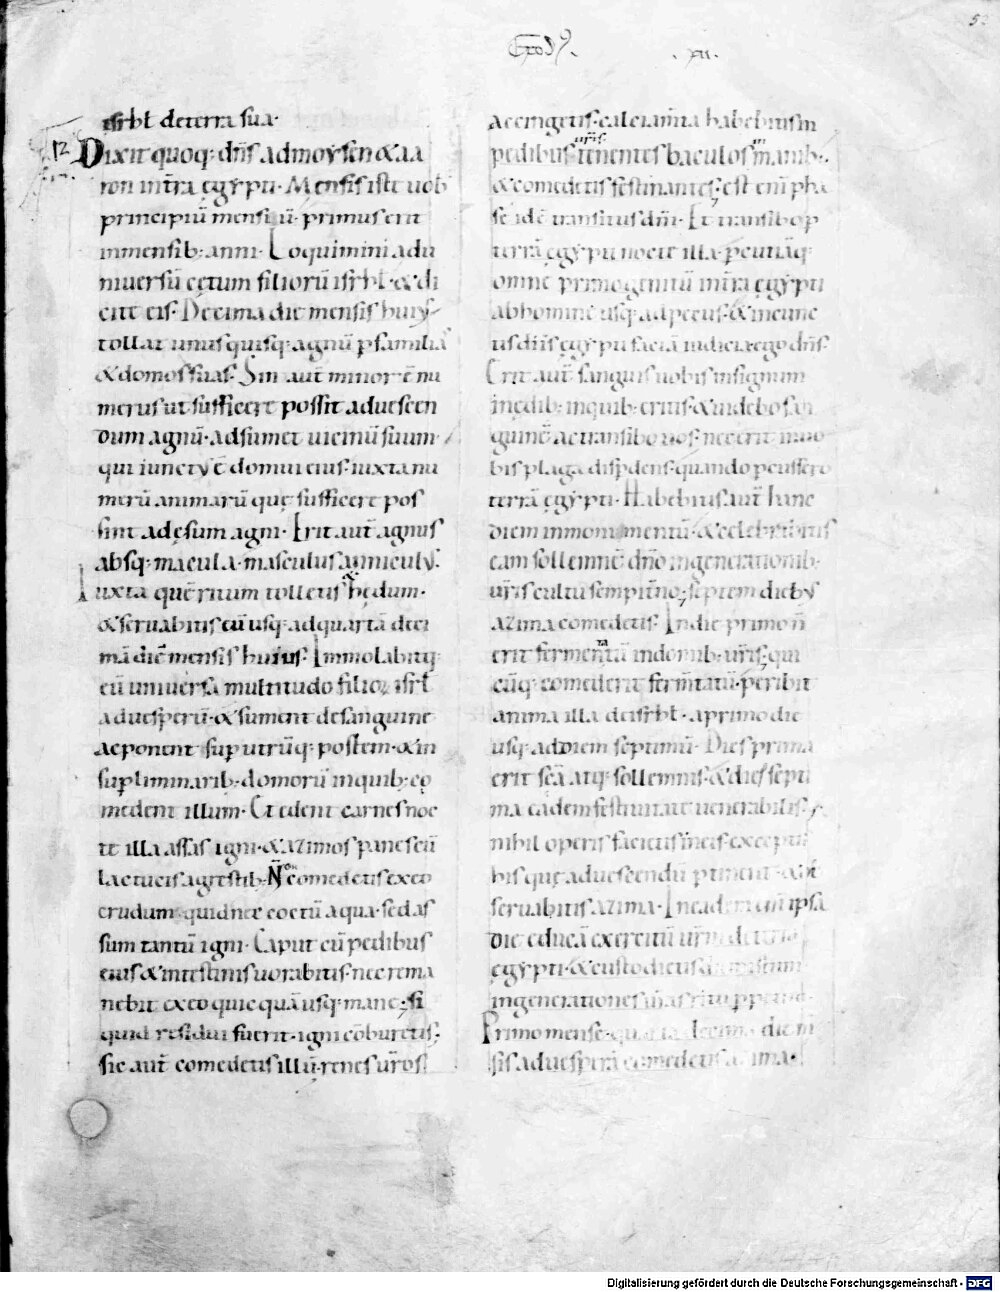 Exod⁹.
.xii.
isrl̄ de terra sua·
12
Dixit quoq; dn̄s ad moysen & aa
ron in tr̄a ęgypti. Mensis iste uob̄
principiū mensiū· primus erit
in mensib; anni· Loquimini ad u
niuersū cętum filiorū isrl̄· & di
cite eis· Decima die mensis huiꝰ
tollat unusquisq; agnū p familias
& domos suas· Sin aut̄ minor ē nu
merus ut sufficere possit ad uescen
dum agnū· adsumet uicinū suum
qui iunctꝰ ē domui eius· iuxta nu
merū animarū quę sufficere pos
sint ad ęsum agni· Erit aut̄ agnus
absq; macula· masculus anniculꝰ·
Iuxta quē ritum tolletis & hędum·
& seruabitis eū usq; ad quartā deci
mā diē mensis huius· Immolabitq;
eū uniuersa multitudo filioꝝ isrl̄
ad uesperū· & sument de sanguine
ac ponent sup utrūq; postem· & in
sup liminarib; domorū in quib; co
medent illum· Et edent carnes noc
te illa assas igni· & azimos panes cū
lactucis agrestib; N̄ comedetis ex eo
crudum quid nec coctū aqua· sed as
sum tantū igni· Caput cū pedibus
eius & intestinis uorabitis· nec rema
nebit ex eo quicquā usq; mane; si
quid residui fuerit· igni cōburetis;
sic aut̄ comedetis illū· renes ur̄os
accingetis· calciam̄ta habebitis in
ur̄is.
pedibus· tenentes baculos in manib;·
& comedetis festinantes; est eni̅ pha
se id ē transitus dn̄i· Et transibo p
terrā ęgypti nocte illa· pcutiāq;
omne primogenitū in tr̄a ęgypti
ab homine usq; ad pecus· & in cunc
tis diis ęgypti faciā iudicia ego dn̄s·
Erit aut̄ sanguis uobis in signum
in ędib; in quib; eritis· & uidebo san
guinē ac transibo uos· nec erit in uo
bis plaga dispdens· quando pcussero
terrā ęgypti· Habebitis aut̄ hanc
diem in monimentū· & celebrabitis
eam sollemnē dn̄o in generationib;
ur̄is cultu sempit̄no; septem diebꝰ
azima comedetis· In die primo n̄
erit fermentū in domib; ur̄is; qui
cūq; comederit ferm̄tatū· peribit
anima illa de isrl̄· a primo die
usq; ad diem septimū· Dies prima
erit sc̄a atq; sollemnis· & dies septi
ma eadem festiuitate uenerabilis·
nihil operis facietis in eis· exceptis
his quę ad uescendū ptinent· &
seruabitis azima· In eadem eni̅ ipsa
die educā exercitū ur̄m de terra
ęgypti· & custodietis diem istum
in generationes ur̄as ritu ppetuo·
Primo mense· quarta decima die m̄
sis ad uesperā comedetis azima·
Digitalisierung gefördert durch die Deutsche Forschungsgemeinschaft - DFG